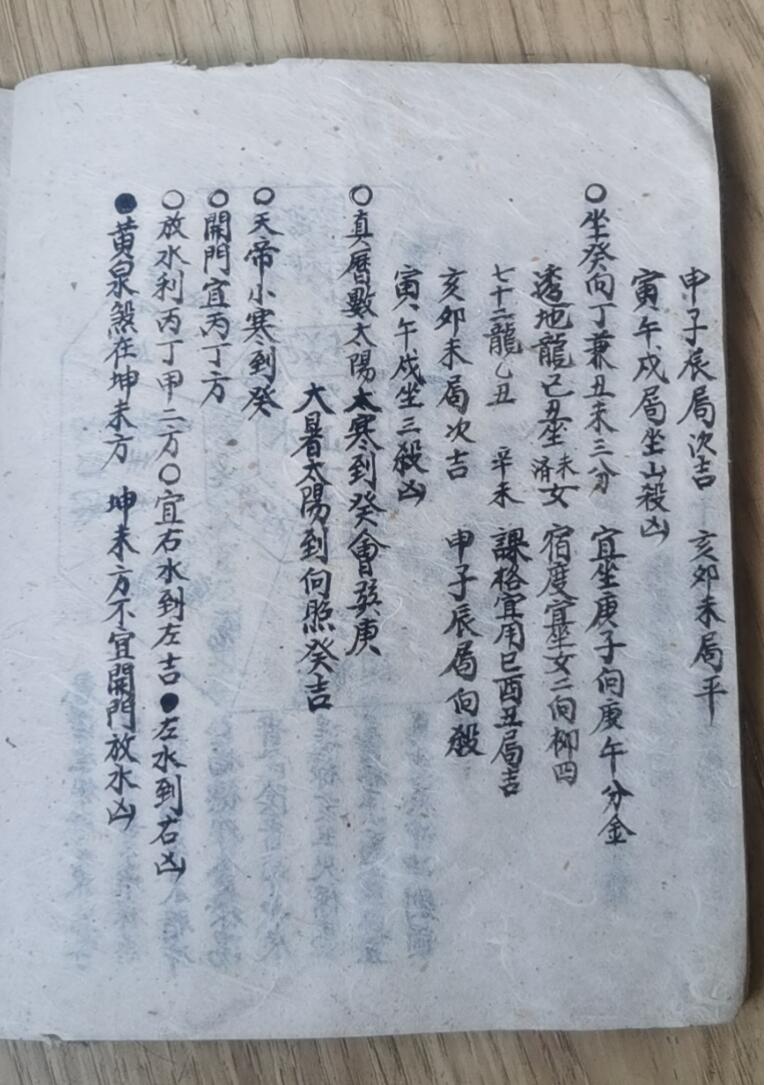 申子辰局次吉　亥卯未局平
寅午戌局坐山殺凶
○坐癸向丁兼丑未三分　宜坐庚子向庚午分金
透地龍己丑坐未济女宿度宜坐女二向柳四
七十二龍乙丑　辛未　課格宜用巳酉丑局吉
亥卯未局次吉　申子辰局向殺
寅午戌坐三殺凶
○真曆數太陽大寒到癸會癸庚
大暑太陽到向照癸吉
○天帝小寒到癸
○開門宜丙丁方
○放水利丙丁甲二方○宜右水到左吉●左水到右凶
●黄泉煞在坤未方　坤未方不宜開門放水凶